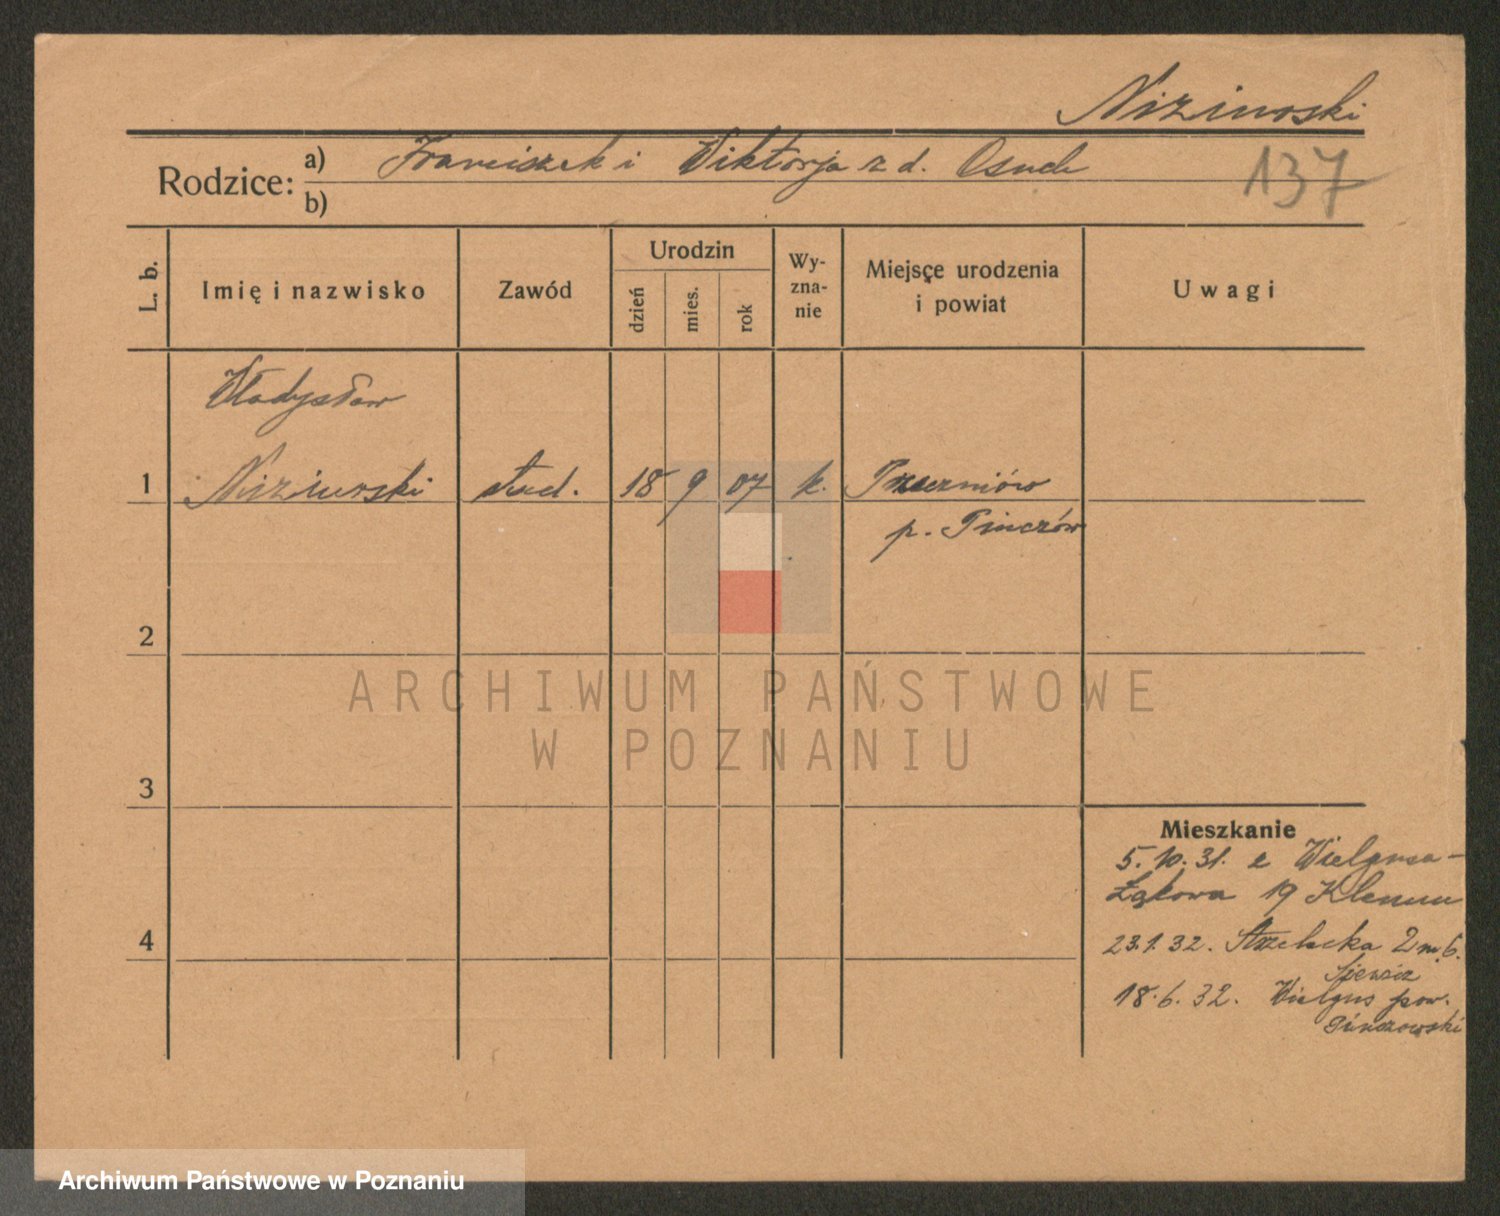 Nizinoski
Rodzice: a) Franciszek i Wiktorja z d. Osuch
137
b)
L. b.
Imię i nazwisko
Zawód
Urodzin
dzień
mies.
rok
Wy-
zna-
nie
Miejsce urodzenia
i powiat
Uwagi
Władysław
1 Niziurski stud. 18 9 07 k.
p. Pinczów
2
ARCHIWUM PAŃSTWOWE
W POZNANIU
3
Mieszkanie
5.10.31. z Wielgusa-
Łąkowa 19
4
23.1.32. Strzelecka 2 m. 6.
18.6.32. Wielgus pow.
Pinczowski
Archiwum Państwowe w Poznaniu